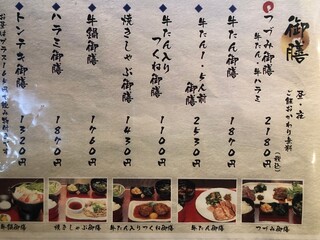 御膳
昼・夜
ご飯おかわり無料
つづみ御膳 2180円(税込)
牛たん・牛ハラミ
牛たん御膳 1870円
牛たん1.5人前御膳 2530円
牛たん入りつくね御膳 1100円
焼きしゃぶ御膳
牛鍋御膳 1760円
ハラミ御膳 1870円
トンテキ御膳 1320円
牛鍋御膳
焼きしゃぶ御膳
牛たん入りつくね御膳
牛たん御膳
つづみ御膳